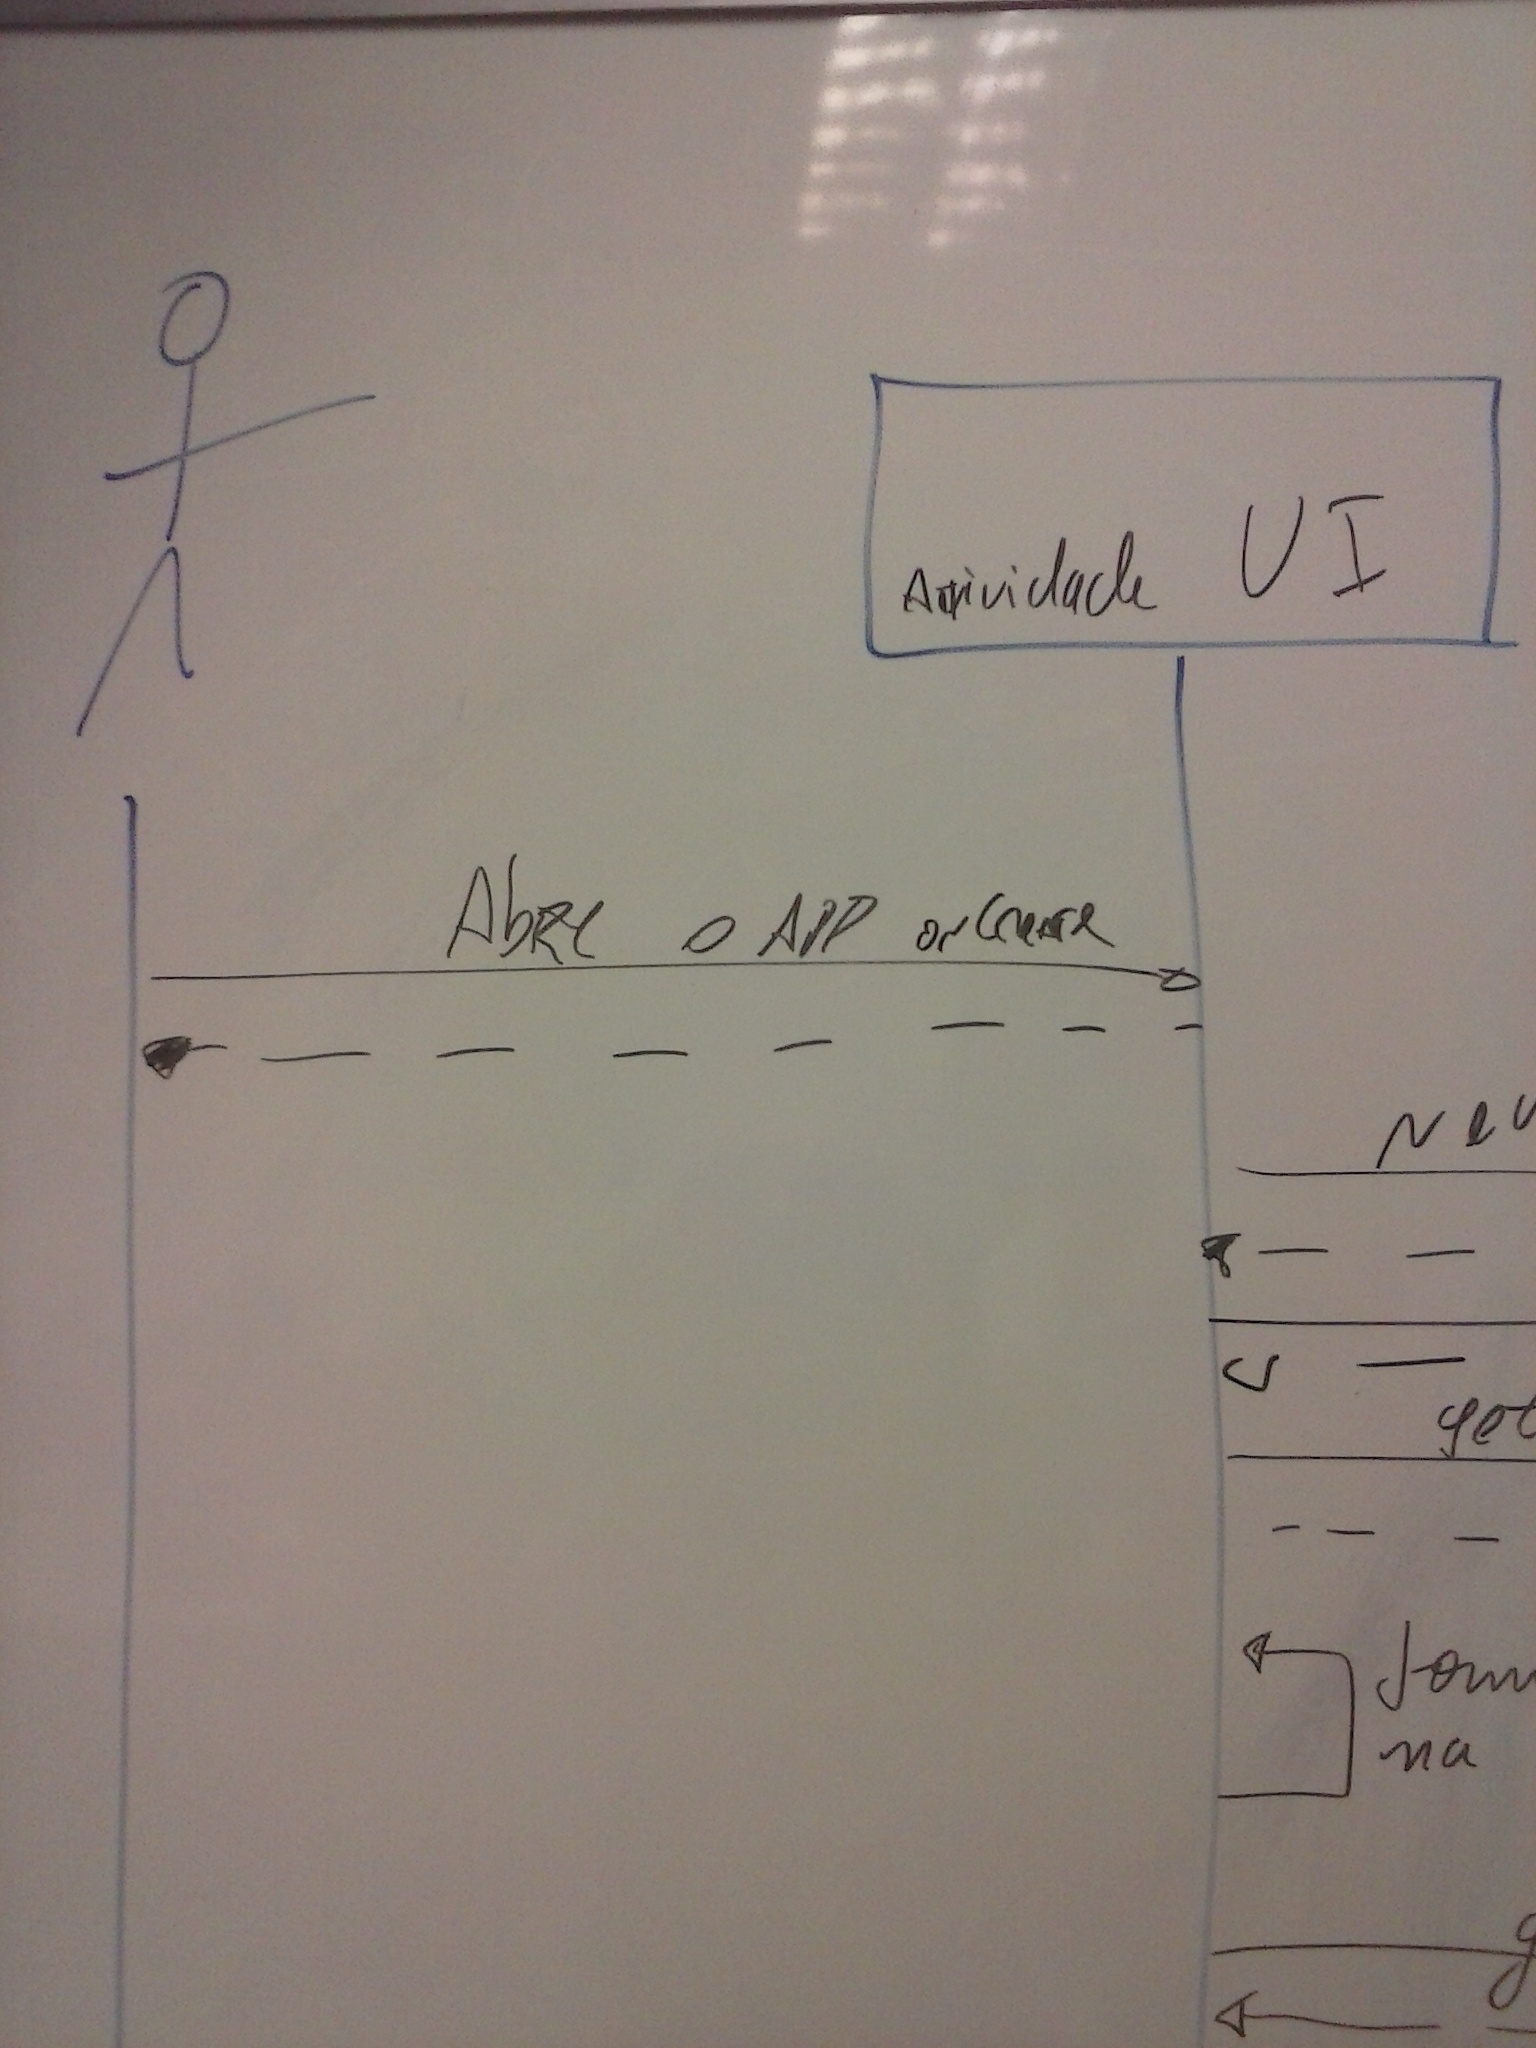 Atividade UI
Abre o APP onCreate
New
get
na
g